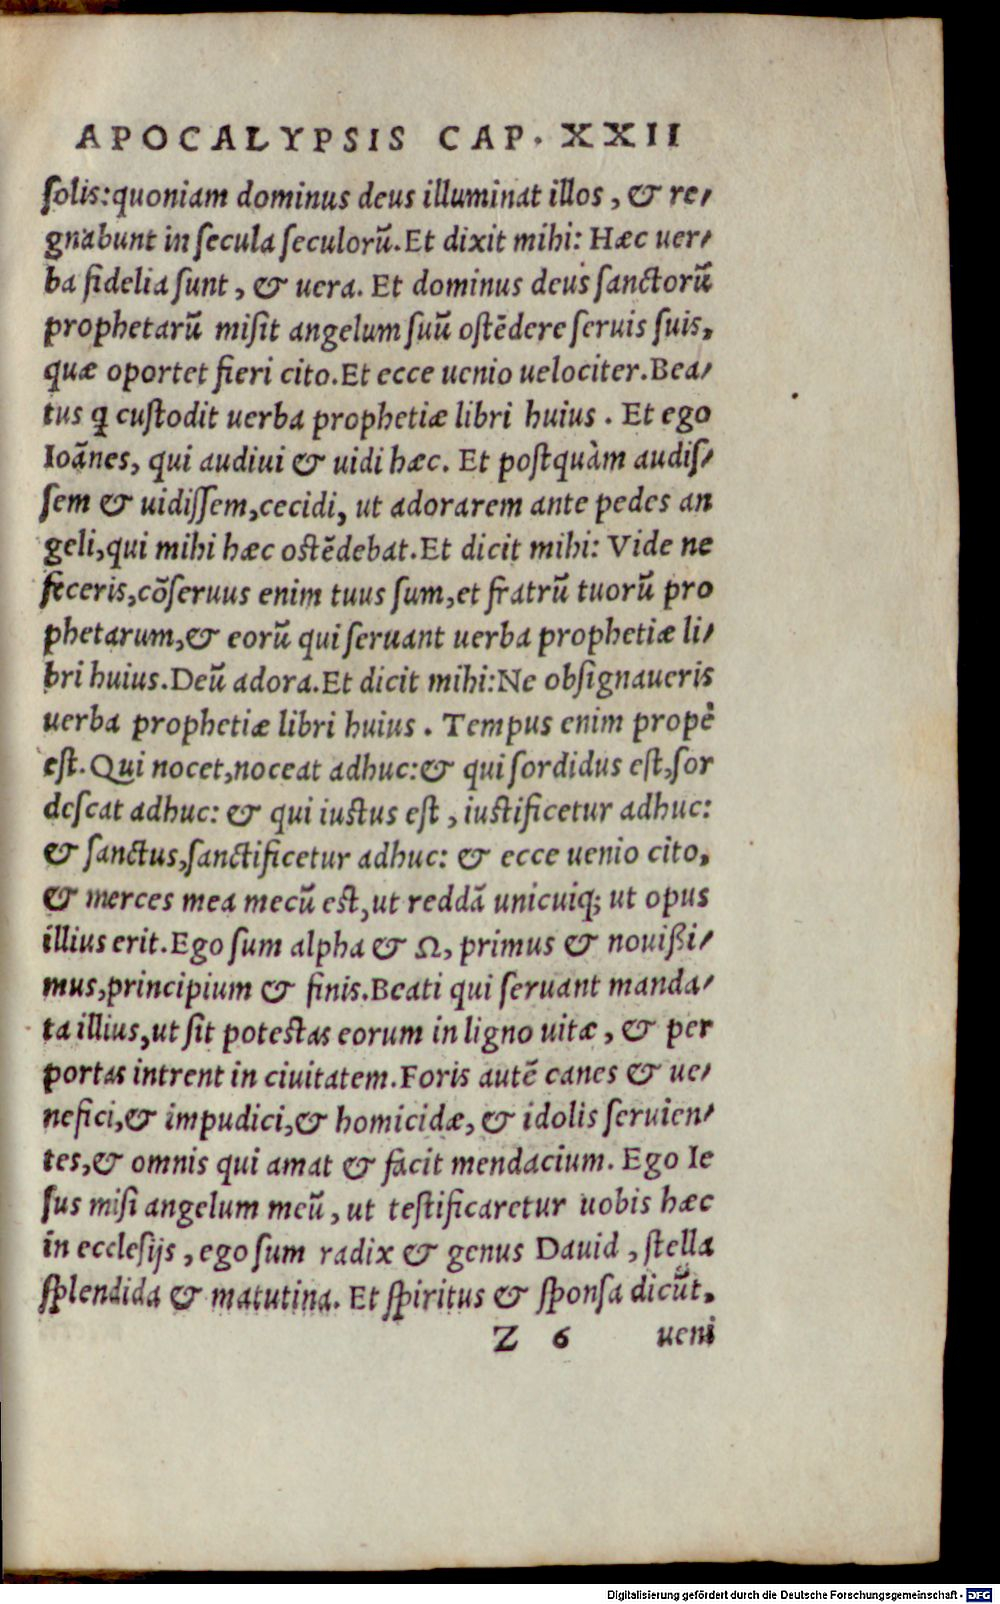 APOCALYPSIS CAP. XXII
solis: quoniam dominus deus illuminat illos, & re-
gnabunt in secula seculorū. Et dixit mihi: Hæc uer-
ba fidelia sunt, & uera. Et dominus deus sanctorū
prophetarū misit angelum suū ostēdere seruis suis,
quæ oportet fieri cito. Et ecce uenio uelociter. Bea-
tus ꝗ custodit uerba prophetiæ libri huius. Et ego
Ioānes, qui audiui & uidi hæc. Et postquàm audis-
sem & uidissem, cecidi, ut adorarem ante pedes an
geli, qui mihi hæc ostēdebat. Et dicit mihi: Vide ne
feceris, cōseruus enim tuus sum, et fratrū tuorū pro
phetarum, & eorū qui seruant uerba prophetiæ li-
bri huius. Deū adora. Et dicit mihi: Ne obsignaueris
uerba prophetiæ libri huius. Tempus enim propè
est. Qui nocet, noceat adhuc: & qui sordidus est, sor
descat adhuc: & qui iustus est, iustificetur adhuc:
& sanctus, sanctificetur adhuc: & ecce uenio cito,
& merces mea mecū est, ut reddā unicuiq; ut opus
illius erit. Ego sum alpha & Ω, primus & nouißi-
mus, principium & finis. Beati qui seruant manda-
ta illius, ut sit potestas eorum in ligno uitæ, & per
portas intrent in ciuitatem. Foris autē canes & ue-
nefici, & impudici, & homicidæ, & idolis seruien-
tes, & omnis qui amat & facit mendacium. Ego Ie
sus misi angelum meū, ut testificaretur uobis hæc
in ecclesijs, ego sum radix & genus Dauid, stella
splendida & matutina. Et spiritus & sponsa dicūt.
Z 6 ueni
Digitalisierung gefördert durch die Deutsche Forschungsgemeinschaft - DFG